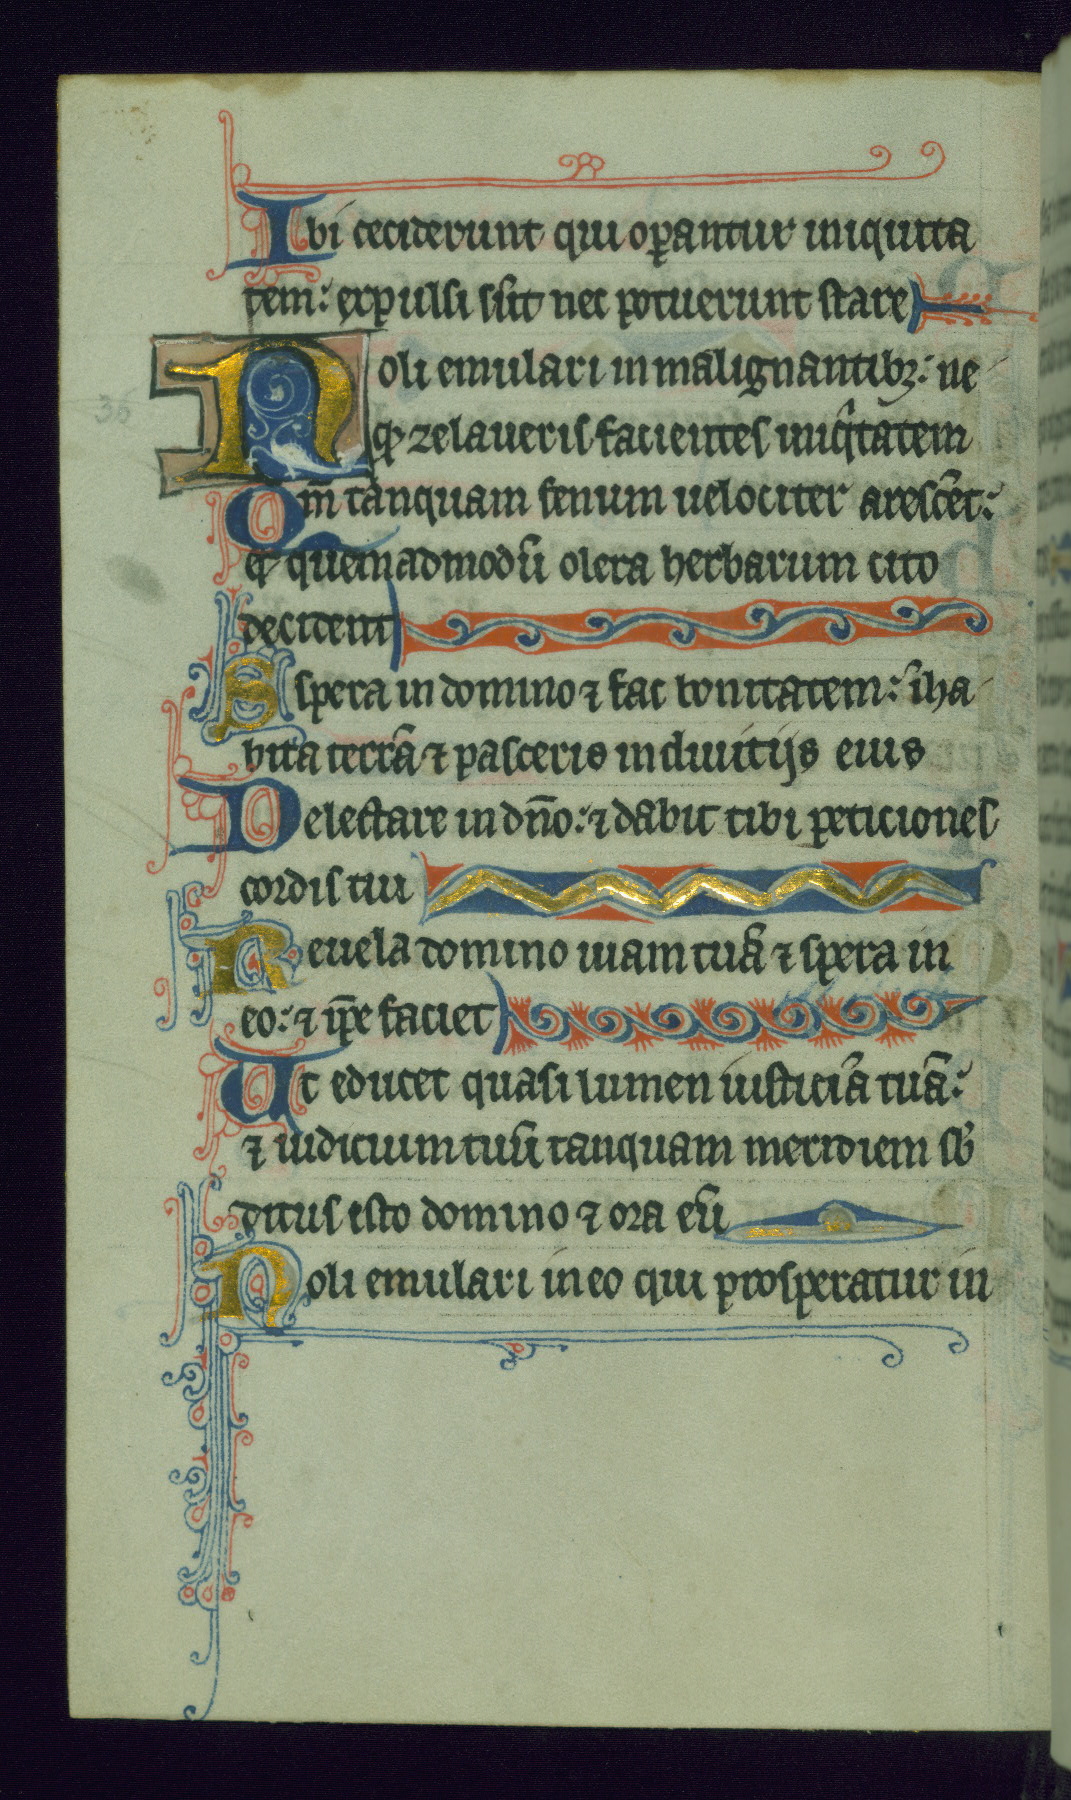 Ibi ceciderunt qui oꝑantur iniquita
tem: expulsi sūt nec potuerunt stare
Noli emulari in malignantibꝫ: ne
qꝫ zelaueris facientes iniq̇tatem
36
Qm̄ tanquam fenum uelociter arescēt:
⁊ quemadmodū olera herbarum cito
decident
Spera in domino ⁊ fac bonitatem: iha
bita terrā ⁊ pasceris in diuitijs eius
Delectare in dn̄o: ⁊ dabit tibi peticiones
cordis tui
Reuela domino uiam tuā ⁊ spera in
eo: ⁊ ip̄e faciet
Et educet quasi lumen iusticiā tuā:
⁊ iudicium tuū tanquam meridiem sb̄
ditus esto domino ⁊ ora eū
Noli emulari in eo qui prosperatur in